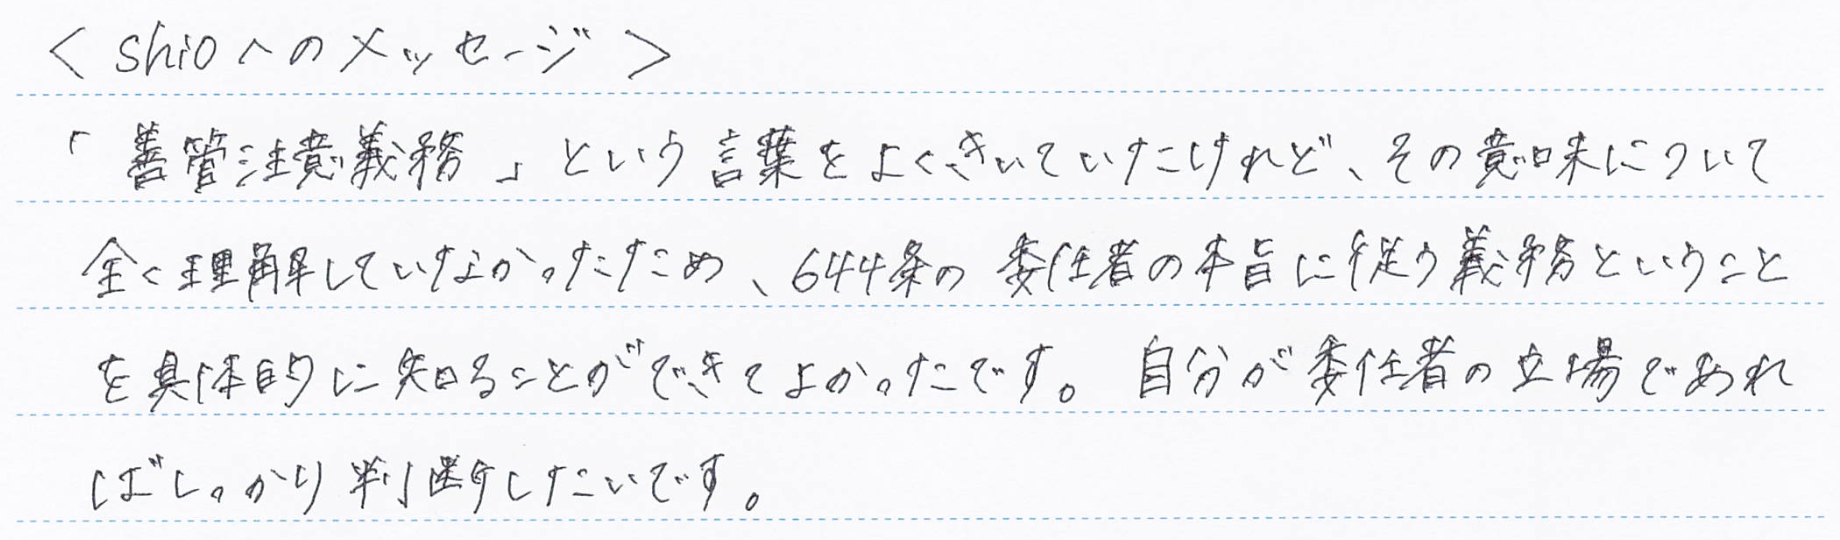 ＜shioへのメッセージ＞
「善管注意義務」という言葉をよくきいていたけれど、その意味について
全く理解していなかったため、644条の委任者の本旨に従う義務ということ
を具体的に知ることができてよかったです。自分が委任者の立場であれ
ばしっかり判断したいです。